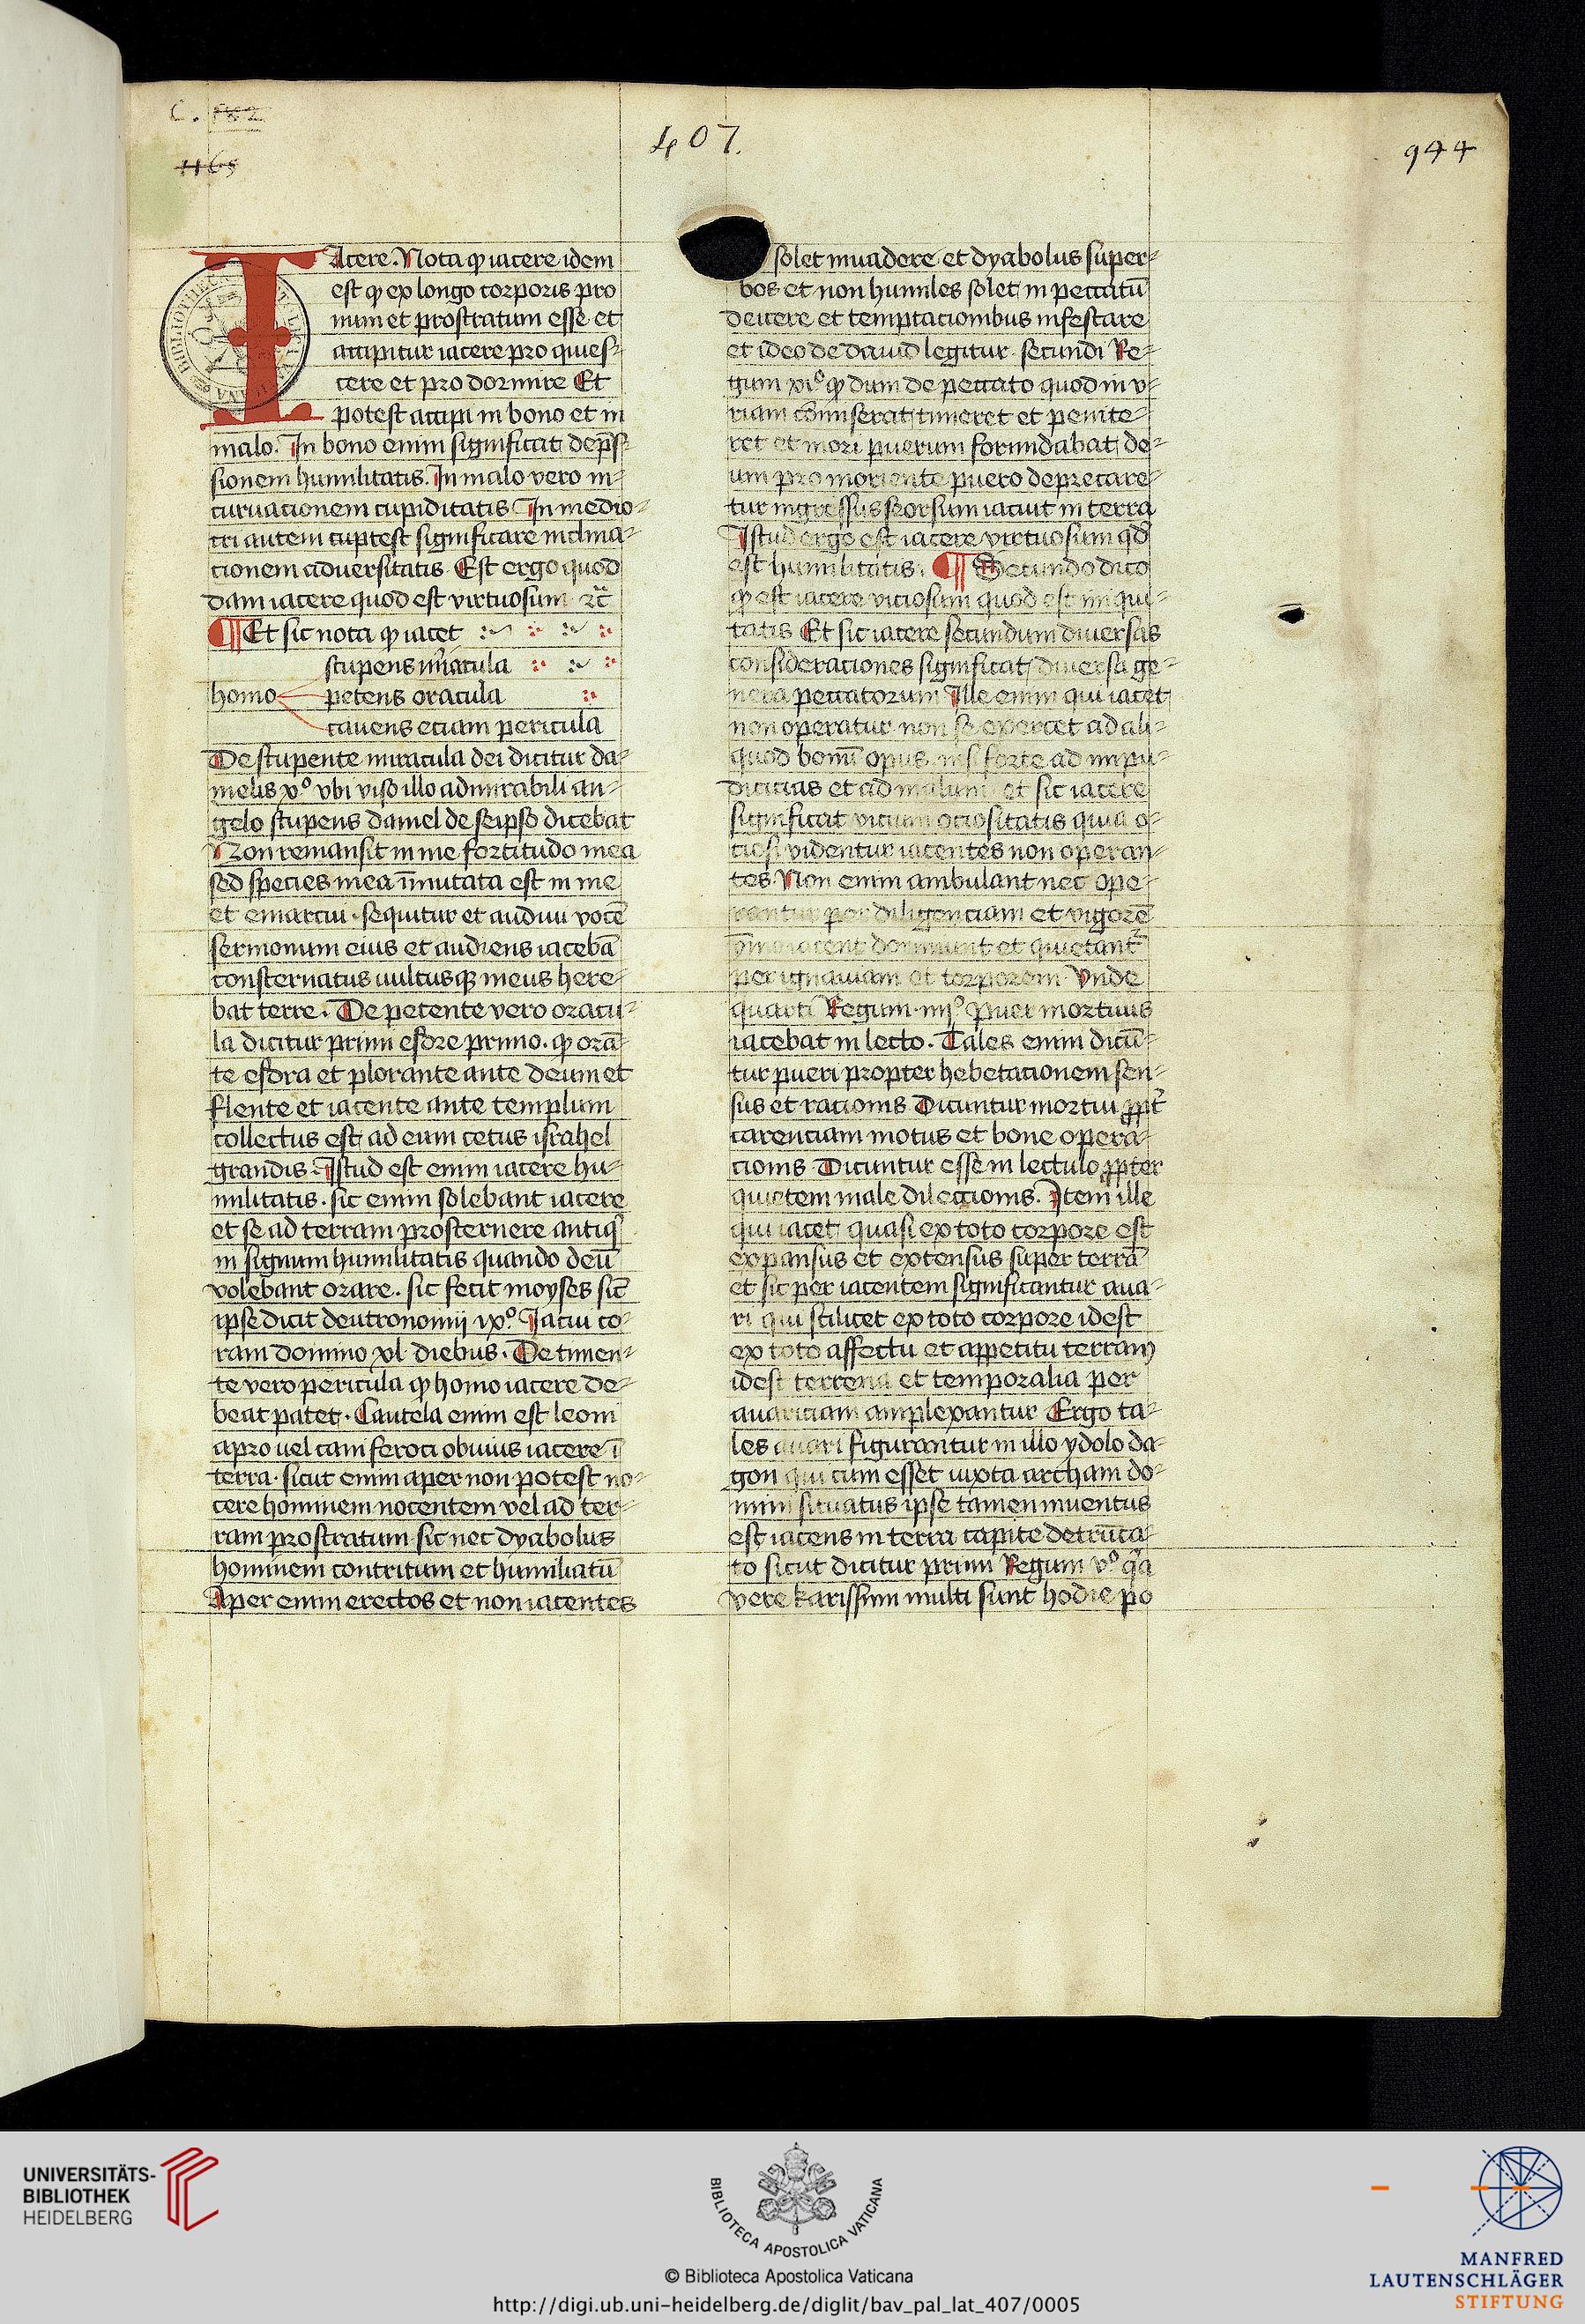 C. 182
1165
407.
944
IAcere. Nota ꝙ iacere idem
est ꝙ ex longo corporis pro
num et prostratum esse et
accipitur iacere pro quies⸗
cere et pro dormire Et
potest accipi in bono et in
malo. In bono enim significat dep̄s⸗
sionem humilitatis. In malo vero in⸗
curuacionem cupiditatis In medio⸗
cri autem significare inclina⸗
cionem aduersitatis Est ergo quod
dam iacere quod est virtuosum ⁊c̄
¶ Et sic nota ꝙ iacet
stupens miracula
homo petens oracula
cauens eciam pericula
De stupente miracula dei dicitur da⸗
nielis xº vbi viso illo admirabili an⸗
gelo stupens daniel de seipso dicebat
Non remansit in me fortitudo mea
sed species mea īmutata est in me
et emarcui · sequitur et audiui vocē
sermonum eius et audiens iacebā
consternatus uultusqꝫ meus here⸗
bat terre. De petente vero oracu⸗
la dicitur primi esdre primo. ꝙ orā⸗
te esdra et plorante ante deum et
flente et iacente ante templum
collectus est ad eum cetus israhel
grandis. Istud est enim iacere hu⸗
militatis. sic enim solebant iacere
et se ad terram prosternere antiq̄
in signum humilitatis quando deū
volebant orare. sic fecit moyses sic̄
ipse dicit deutronomij ixº Iacui co⸗
ram domino xl diebus. De timen⸗
te vero pericula ꝙ homo iacere de⸗
beat patet. Cautela enim est leoni
apro uel cani feroci obuius iacere ī
terra. sicut enim aper non potest no⸗
cere hominem nocentem vel ad ter⸗
ram prostratum sic nec dyabolus
hominem contritum et humiliatū
Aper enim erectos et non iacentes
solet inuadere et dyabolus super⸗
bos et non humiles solet in peccatū
deicere et temptacionibus infestare
et ideo de dauid legitur secundi Re⸗
gum xiiº ꝙ dum de peccato quod in v⸗
riam cōmiserat timeret et penite⸗
ret et mori puerum formidabat de⸗
um pro moriente puero deprecare⸗
tur ingressus seorsum iacuit in terra
Istud ergo est iacere virtuosum qd̄
est humilitatis. ¶ Secundo dico
ꝙ est iacere viciosum quod est iniqui⸗
tatis Et sic iacere secundum diuersas
consideraciones significat diuersa ge⸗
nera peccatorum Ille enim qui iacet
non operatur non se exercet ad ali⸗
quod bonū opus nisi forte ad inpu⸗
dicicias et ad malum et sic iacere
significat vicium ociositatis quia o⸗
ciosi videntur iacentes non operan⸗
tes Non enim ambulant nec ope⸗
rantur per diligenciam et vigorē
iacent dormiunt et quietant᷑
per ignauiam et torporem Vnde
quarti Regum iiijº Puer mortuus
iacebat in lecto. Tales enim dicū⸗
tur pueri propter hebetacionem sen⸗
sus et racionis Dicuntur mortui ꝓpt̄
carenciam motus et bone opera⸗
cionis Dicuntur esse in lectulo ꝓpter
quietem male dileccionis. Item ille
qui iacet quasi ex toto corpore est
expansus et extensus super terrā
et sic per iacentem significantur aua⸗
ri qui scilicet ex toto corpore idest
ex toto affectu et appetitu terram
idest terrena et temporalia per
auariciam amplexantur Ergo ta⸗
les auari figurantur in illo ydolo da⸗
gon qui cum esset iuxta archam do⸗
mini situatus ipse tamen inuentus
est iacens in terra capite detrūca⸗
to sicut dicitur primi Regum vº qā
vere karissimi multi sunt hodie po
UNIVERSITÄTS-
BIBLIOTHEK
HEIDELBERG
BIBLIOTECA APOSTOLICA VATICANA
© Biblioteca Apostolica Vaticana
http://digi.ub.uni-heidelberg.de/diglit/bav_pal_lat_407/0005
MANFRED
LAUTENSCHLÄGER
STIFTUNG